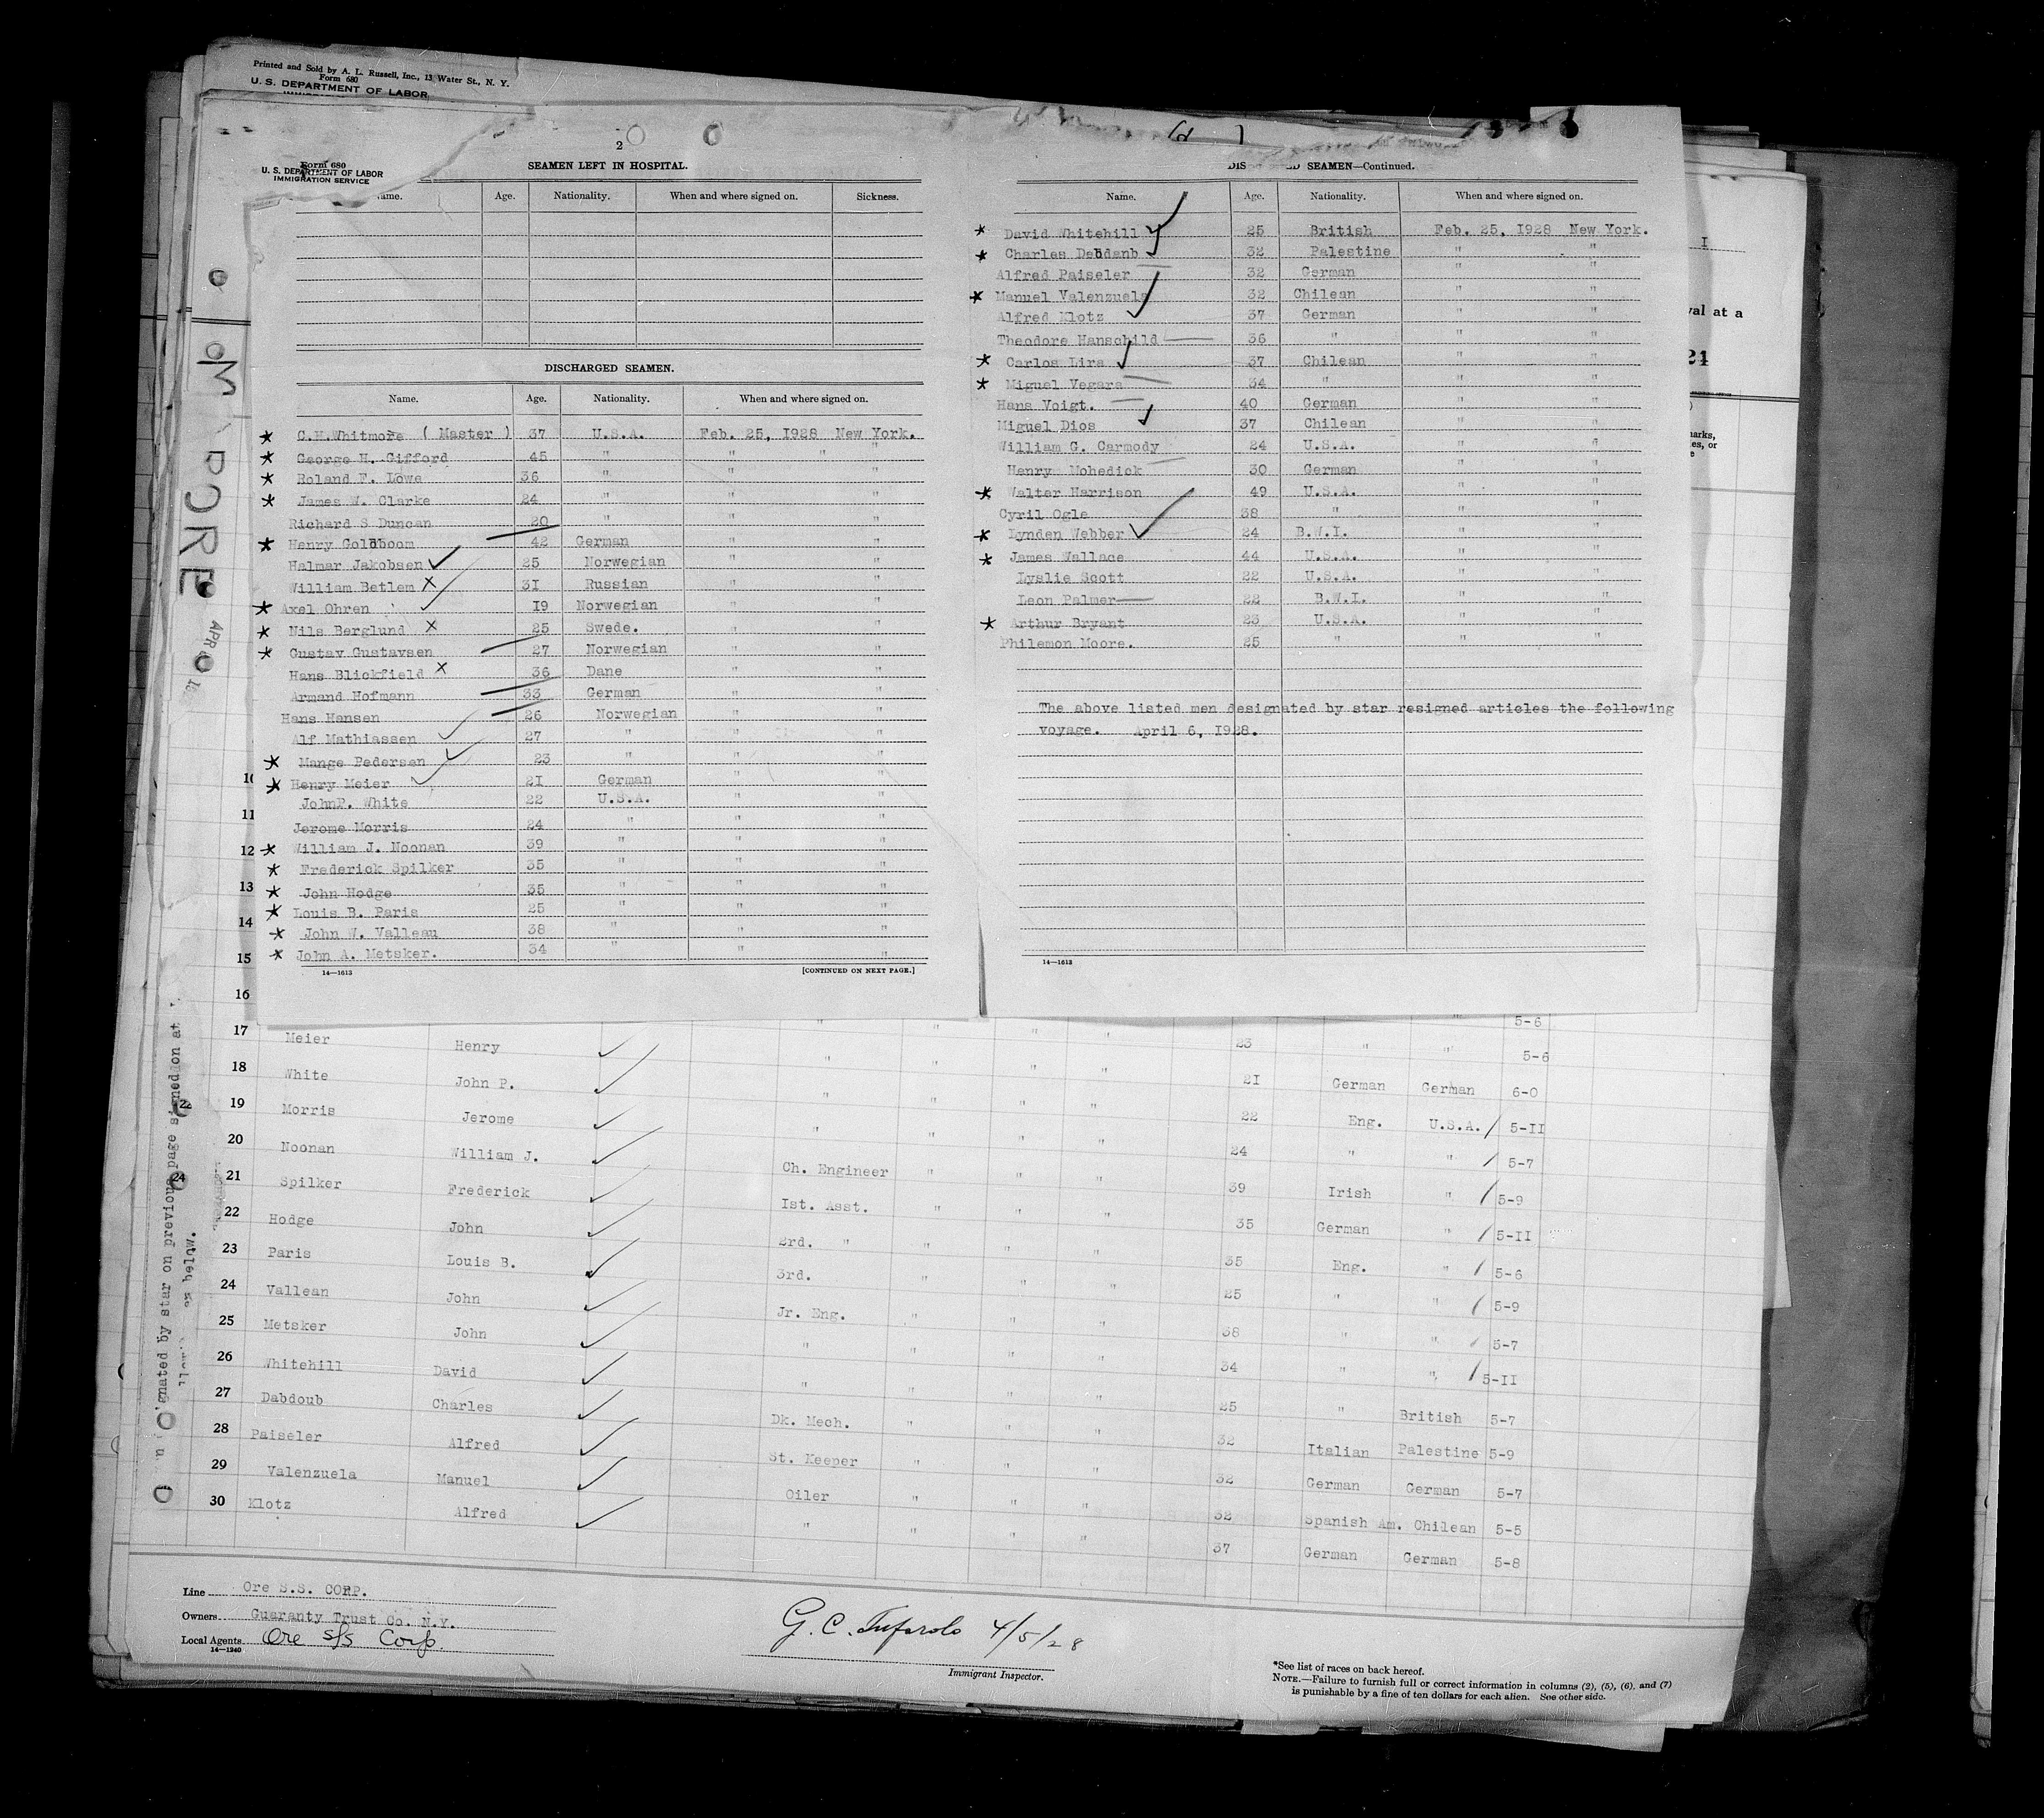 Printed and Sold by A. L. Russell, Inc., 13 Water St., N. Y.
Form 680
U. S. DEPARTMENT OF LABOR
2
Form 680
U. S. DEPARTMENT OF LABOR
IMMIGRATION SERVICE
SEAMEN LEFT IN HOSPITAL.
Age. Nationality. When and where signed on. Sickness.
DISCHARGED SEAMEN.
Name. Age. Nationality. When and where signed on.
* C.H.Whitmore ( Master ) 37 U.S.A. Feb. 25, 1928 New York.
* George H. Gifford 45 " " " "
* Roland F. Lowe 36 " " "
* James W. Clarke 24 " " "
Richard S Duncan 20 " " "
* Henry Goldboom 42 German " "
Halmar Jakobsen 25 Norwegian " "
William Betlem X 31 Russian " "
* Axel Ohren 19 Norwegian " "
* Nils Berglund X 25 Swede. " "
* Gustav Gustavsen 27 Norwegian " "
Hans Blickfield X 36 Dane " "
Armand Hofmann 33 German " "
Hans Hansen 26 Norwegian " "
Alf Mathiassen 27 " " "
* Mange Pedersen 23 " " "
* Henry Meier 21 German " "
JohnP. White 22 U.S.A. " "
Jerome Morris 24 " " "
* William J. Noonan 39 " " "
* Frederick Spilker 35 " " "
* John Hodge 35 " " "
* Louis B. Paris 25 " " "
* John W. Valleau 38 " " "
* John A. Metsker. 34 " " "
14—1613 [CONTINUED ON NEXT PAGE.]
SEAMEN—Continued.
Name. Age. Nationality. When and where signed on.
* David Whitehill 25 British Feb. 25, 1928 New York.
* Charles 32 Palestine " "
Alfred Paiseler 32 German " "
* Manuel Valenzuela 32 Chilean " "
Alfred Klotz 37 German " "
Theodore Hanschild 36 " " "
* Carlos Lira 37 Chilean " "
* Miguel Vegara 34 " " "
Hans Voigt. 40 German " "
Miguel Dios 37 Chilean " "
William G. Carmody 24 U.S.A. " "
Henry Mohedick 30 German " "
* Walter Harrison 49 U.S.A. " "
Cyril Ogle 38 " " "
* Lynden Webber 24 B.W.I. " "
* James Wallace 44 U.S.A. " "
Lyslie Scott 22 U.S.A. " "
Leon Palmer 22 B.W.I. " "
* Arthur Bryant 23 U.S.A. " "
Philemon Moore. 25 " " "
The above listed men designated by star resigned articles the following
voyage. April 6, 1928.
14—1613
I
val at a
arks,
es, or
ORE
APR
10
11
12
13
14
15
16
5-6
17 Meier Henry " " " " 23 " " 5-6
18 White John P. " " " " 21 German German 6-0
19 Morris Jerome " " " " 22 Eng. U.S.A. 5-11
20 Noonan William J. " " " " 24 " " 5-7
21 Spilker Frederick Ch. Engineer " " " 39 Irish " 5-9
22 Hodge John 1st. Asst. " " " 35 German " 5-11
23 Paris Louis B. 2rd. " " " " 35 Eng. " 5-6
24 Vallean John 3rd. " " " 25 " " 5-9
25 Metsker John Jr. Eng. " " " 38 " " 5-7
26 Whitehill David " " " " 34 " " 5-11
27 Dabdoub Charles " " " " 25 " British 5-7
28 Paiseler Alfred Dk. Mech. " " " 32 Italian Palestine 5-9
29 Valenzuela Manuel St. Keeper " " " 32 German German 5-7
30 Klotz Alfred Oiler " " " 32 Spanish Am. Chilean 5-5
" " " " 37 German German 5-8
gnated by star on previous page signed on at
below.
22
24
Line Ore S.S. CORP.
Owners Guaranty Trust Co. N.Y.
Local Agents Ore S/S Corp.
14—1240
G. C. Tufarolo 4/5/28
Immigrant Inspector.
*See list of races on back hereof.
NOTE.—Failure to furnish full or correct information in columns (2), (5), (6), and (7)
is punishable by a fine of ten dollars for each alien. See other side.